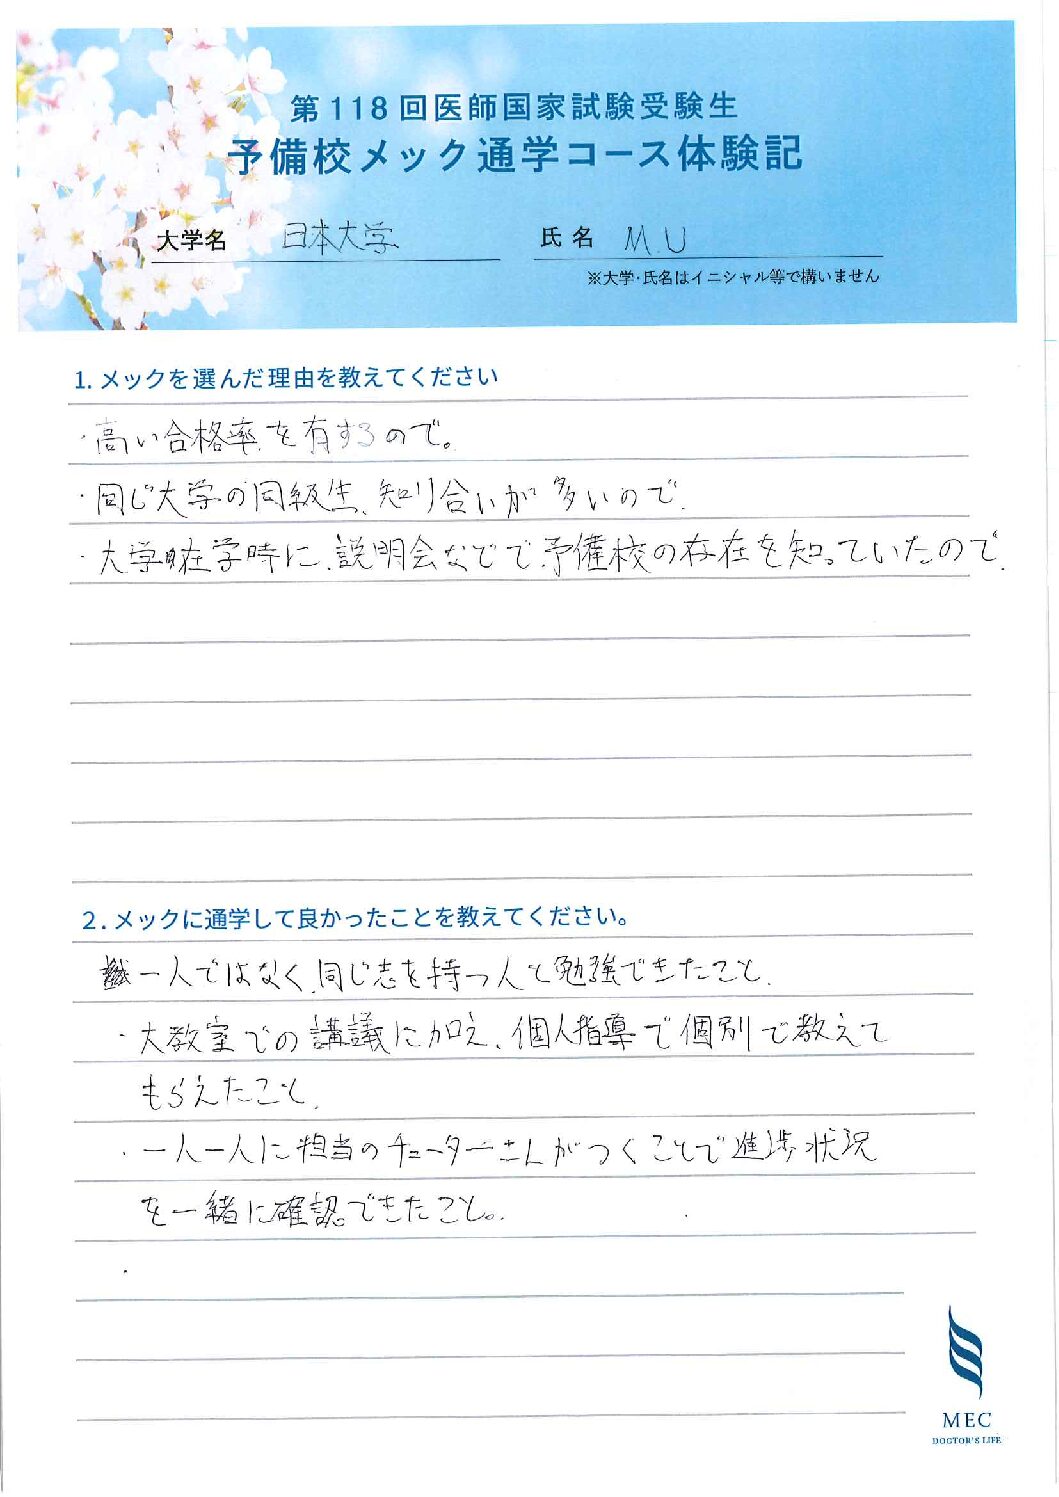 第118回医師国家試験受験生
予備校メック通学コース体験記
大学名 日本大学 氏名 M.U
※大学・氏名はイニシャル等で構いません
1. メックを選んだ理由を教えてください
・高い合格率を有するので。
・同じ大学の同級生、知り合いが多いので.
・大学在学時に、説明会などで予備校の存在を知っていたので.
2. メックに通学して良かったことを教えてください。
一人ではなく、同じ志を持つ人と勉強できたこと.
・大教室での講議に加え、個人指導で個別で教えて
もらえたこと.
・一人一人に担当のチューターさんがつくことで進捗状況
を一緒に確認できたこと。
・
MEC
DOCTOR'S LIFE